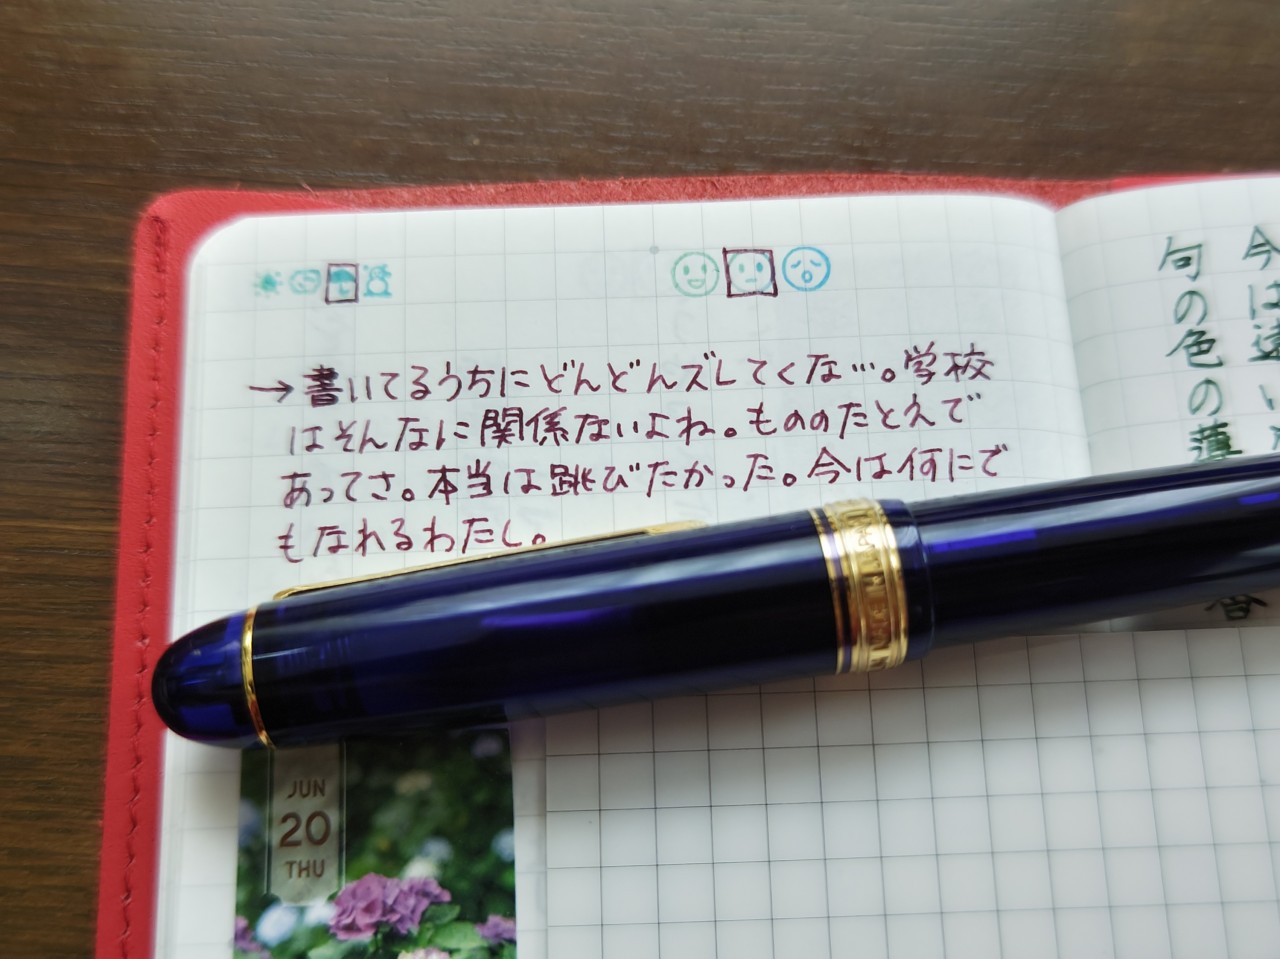 →書いてるうちにどんどんズレてくな…。学校
はそんなに関係ないよね。もののたとえで
あってさ。本当は跳びたかった。今は何にで
もなれるわたし。
今は遠い
句の色の薄
JUN
20
THU